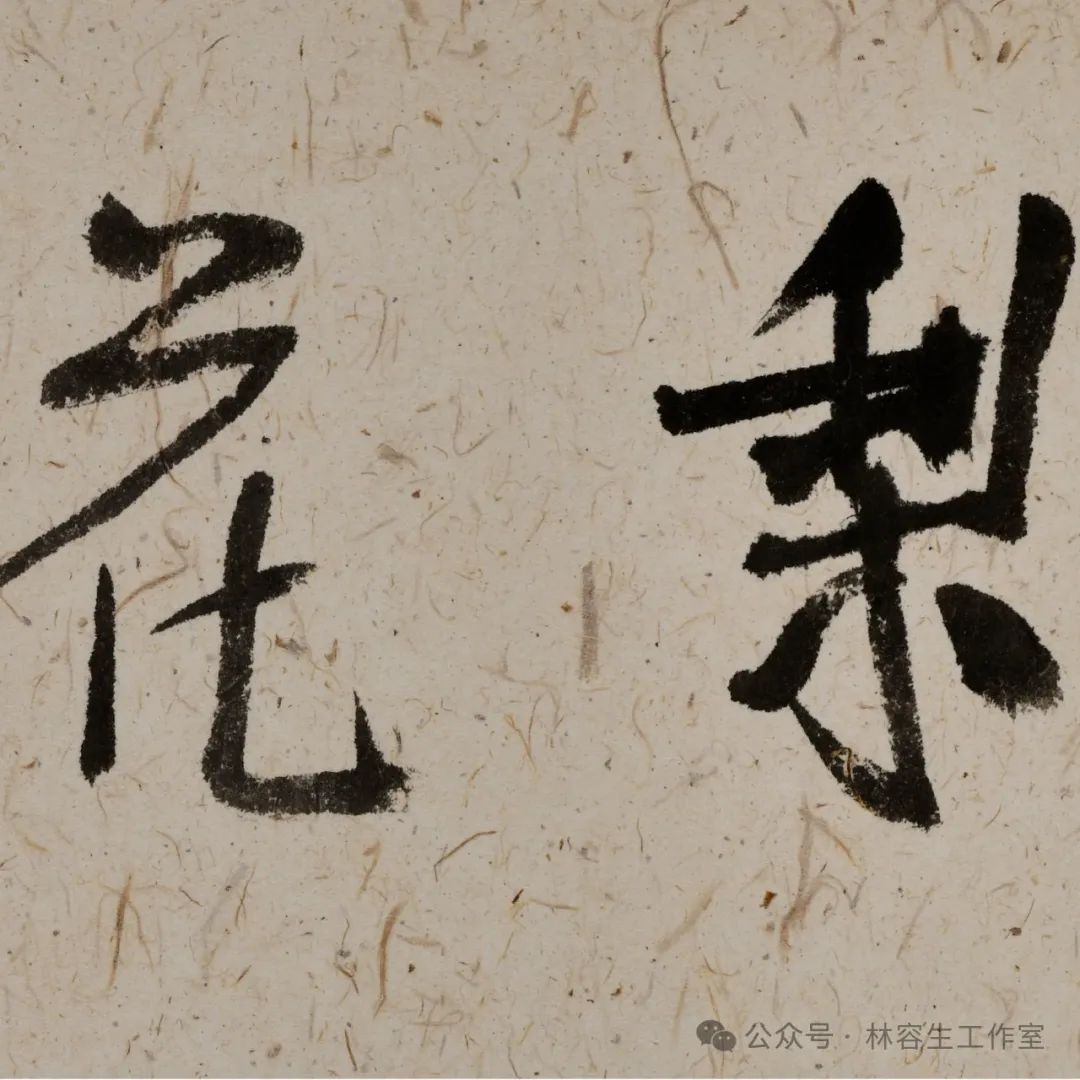 梨花
公众号·林容生工作室